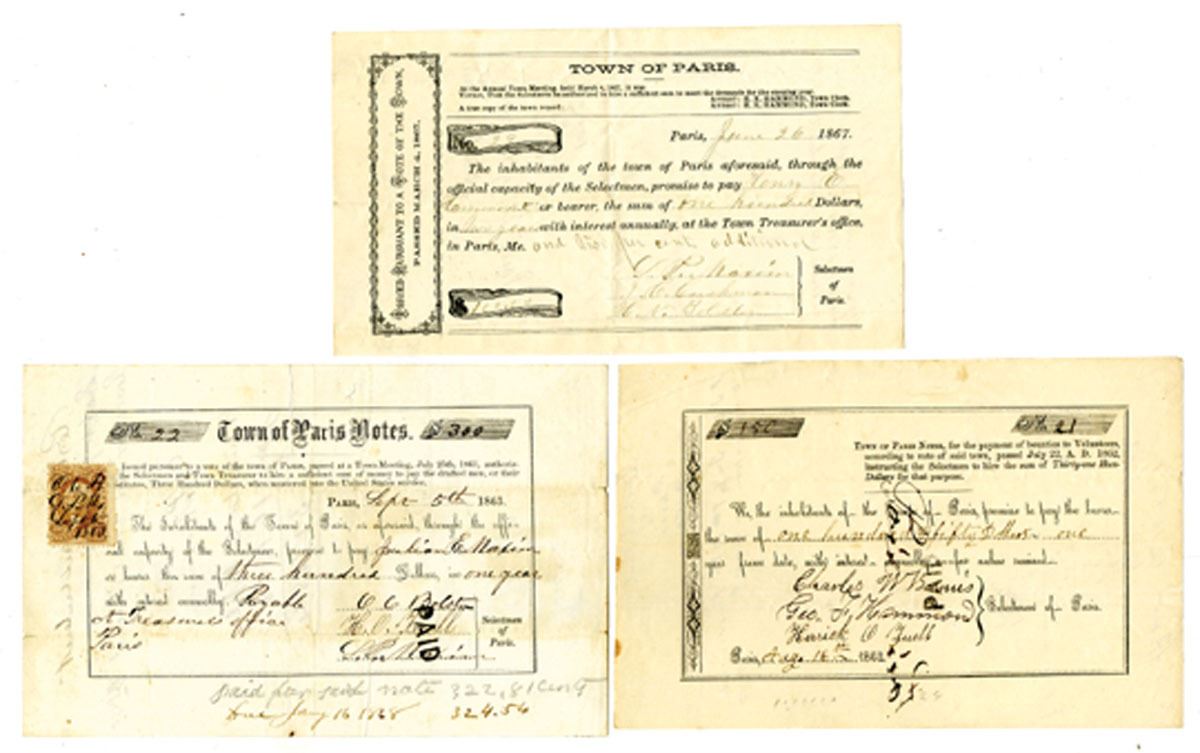 TOWN OF PARIS.
At the Annual Town Meeting held March 4, 1867, it was
Voted, That the Selectmen be authorized to hire a sufficient sum to meet the demands for the ensuing year.
Attest: H. E. HAMMOND, Town Clerk.
A true copy of the town record:
Attest: H. E. HAMMOND, Town Clerk.
ISSUED PURSUANT TO A VOTE OF THE TOWN,
PASSED MARCH 4, 1867.
No.
Paris, June 26 1867.
The inhabitants of the town of Paris aforesaid, through the
official capacity of the Selectmen, promise to pay
or bearer, the sum of one hundred Dollars,
in with interest annually, at the Town Treasurer's office,
in Paris, Me. and two per cent. additional
Selectmen
of
Paris.
$
No. 22 Town of Paris Notes. $ 300
Issued pursuant to a vote of the town of Paris, passed at a Town Meeting, July 1863, authorizing
the Selectmen and Town Treasurer to hire a sufficient sum of money to pay the drafted men, or their
substitutes, Three Hundred Dollars, when mustered into the United States service.
Paris, Sept 5th 1863.
The Inhabitants of the Town of Paris, as aforesaid, through the offi-
cial capacity of the Selectmen, promise to pay Maxim
or bearer the sum of three hundred Dollars, in one year
with interest annually. Payable
at Treasurers office
Paris
PAID
Selectmen
of
Paris.
paid for said note 322,81 cent
Due Jany 16 1868 324.54
$ 150 No. 21
TOWN OF PARIS NOTES, for the payment of bounties to Volunteers,
according to vote of said town, passed July 22, A. D. 1862,
instructing the Selectmen to hire the sum of Thirty-one Hun-
Dollars for that purpose.
We, the inhabitants of the of Paris, promise to pay the bearer
the sum of one hundred & fifty Dollars one
year from date, with interest annually, for value received.
Charles W
Geo. F. Hammond
Herrick C
Selectmen of Paris.
Paris, Aug. 1862.